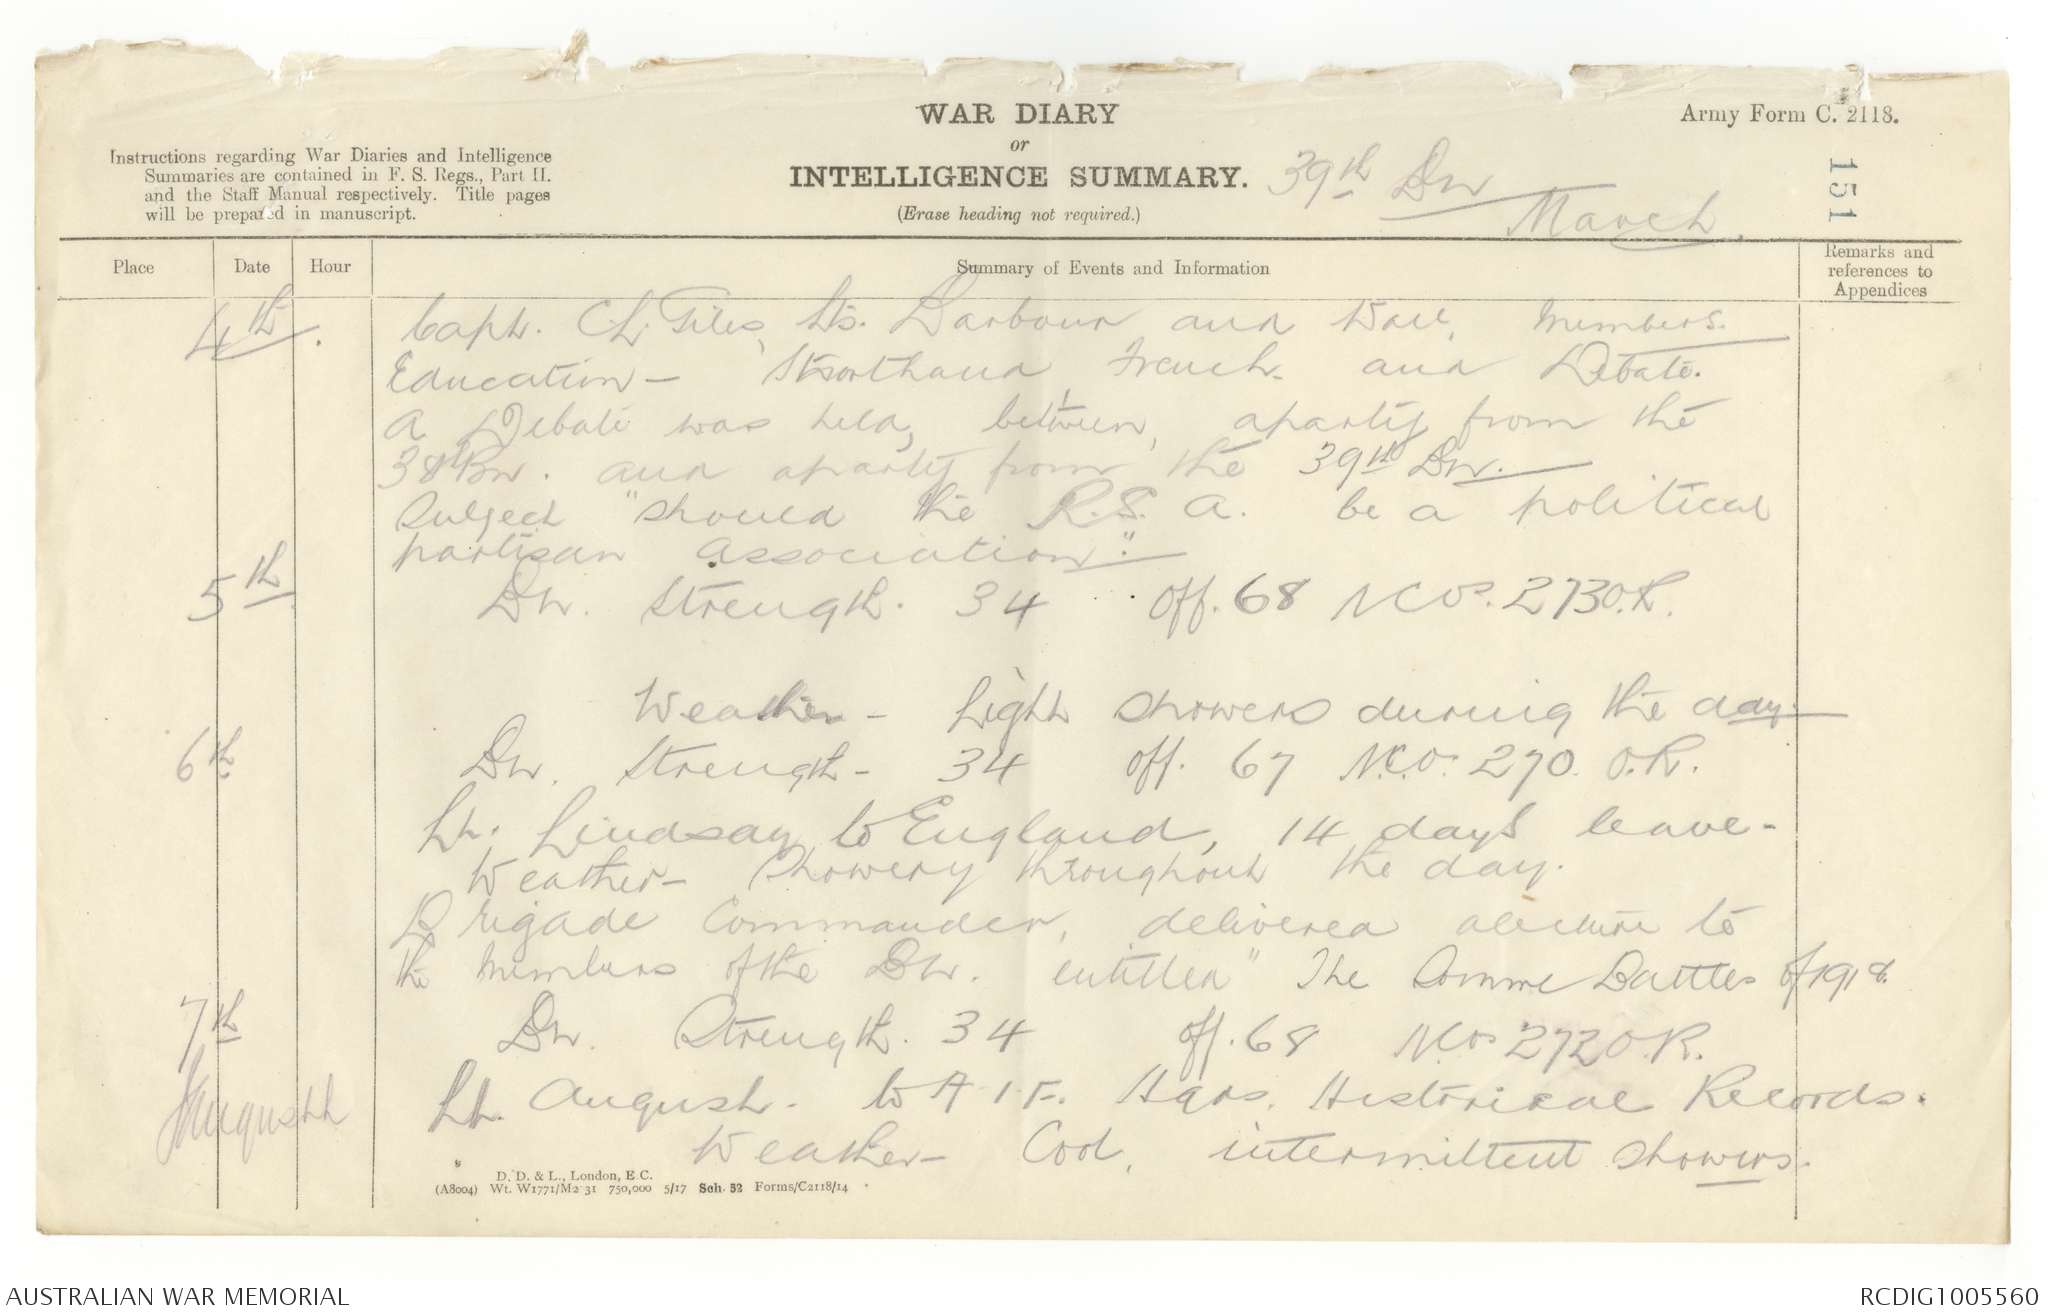 WAR DIARY
or
INTELLIGENCE SUMMARY.
(Erase heading not required.)
Army Form C. 2118.
Instructions regarding War Diaries and Intelligence
Summaries are contained in F. S. Regs., Part II.
and the Staff Manual respectively. Title pages
will be prepared in manuscript.
39th Bn
March.
151
Place
Date
Hour
Summary of Events and Information
Remarks and
references to
Appendices
4th. Capt. C.L. Giles, Lts. Barbour and members.
Education - Shorthand, French and Debate.
A Debate was held, between, a party from the
38th Bn. and a party from the 39th Bn.
Subject "should the R.S.A. be a political
partisan association".
5th Bn. Strength. 34 Off. 68 NCOs. 273 O.R.
Weather - Light showers during the day
6th Bn. Strength - 34 Off. 67 N.C.O. 270. O.R.
Lt. Lindsay to England, 14 days leave -
Weather - Showery throughout the day.
Brigade Commander, delivered a lecture to
the members of the Bn. entitled "The Somme Battles of 1918.
7th Bn. Strength. 34 Off. 68 N.C.Os 272 O.R.
Lt. August. to A.I.F. Hqrs. Historical Records.
Weather - Cool, intermittent showers.
D. D. & L., London, E.C.
(A8004) Wt. W1771/M2 31 750,000 5/17 Sch. 52 Forms/C2118/14
AUSTRALIAN WAR MEMORIAL
RCDIG1005560